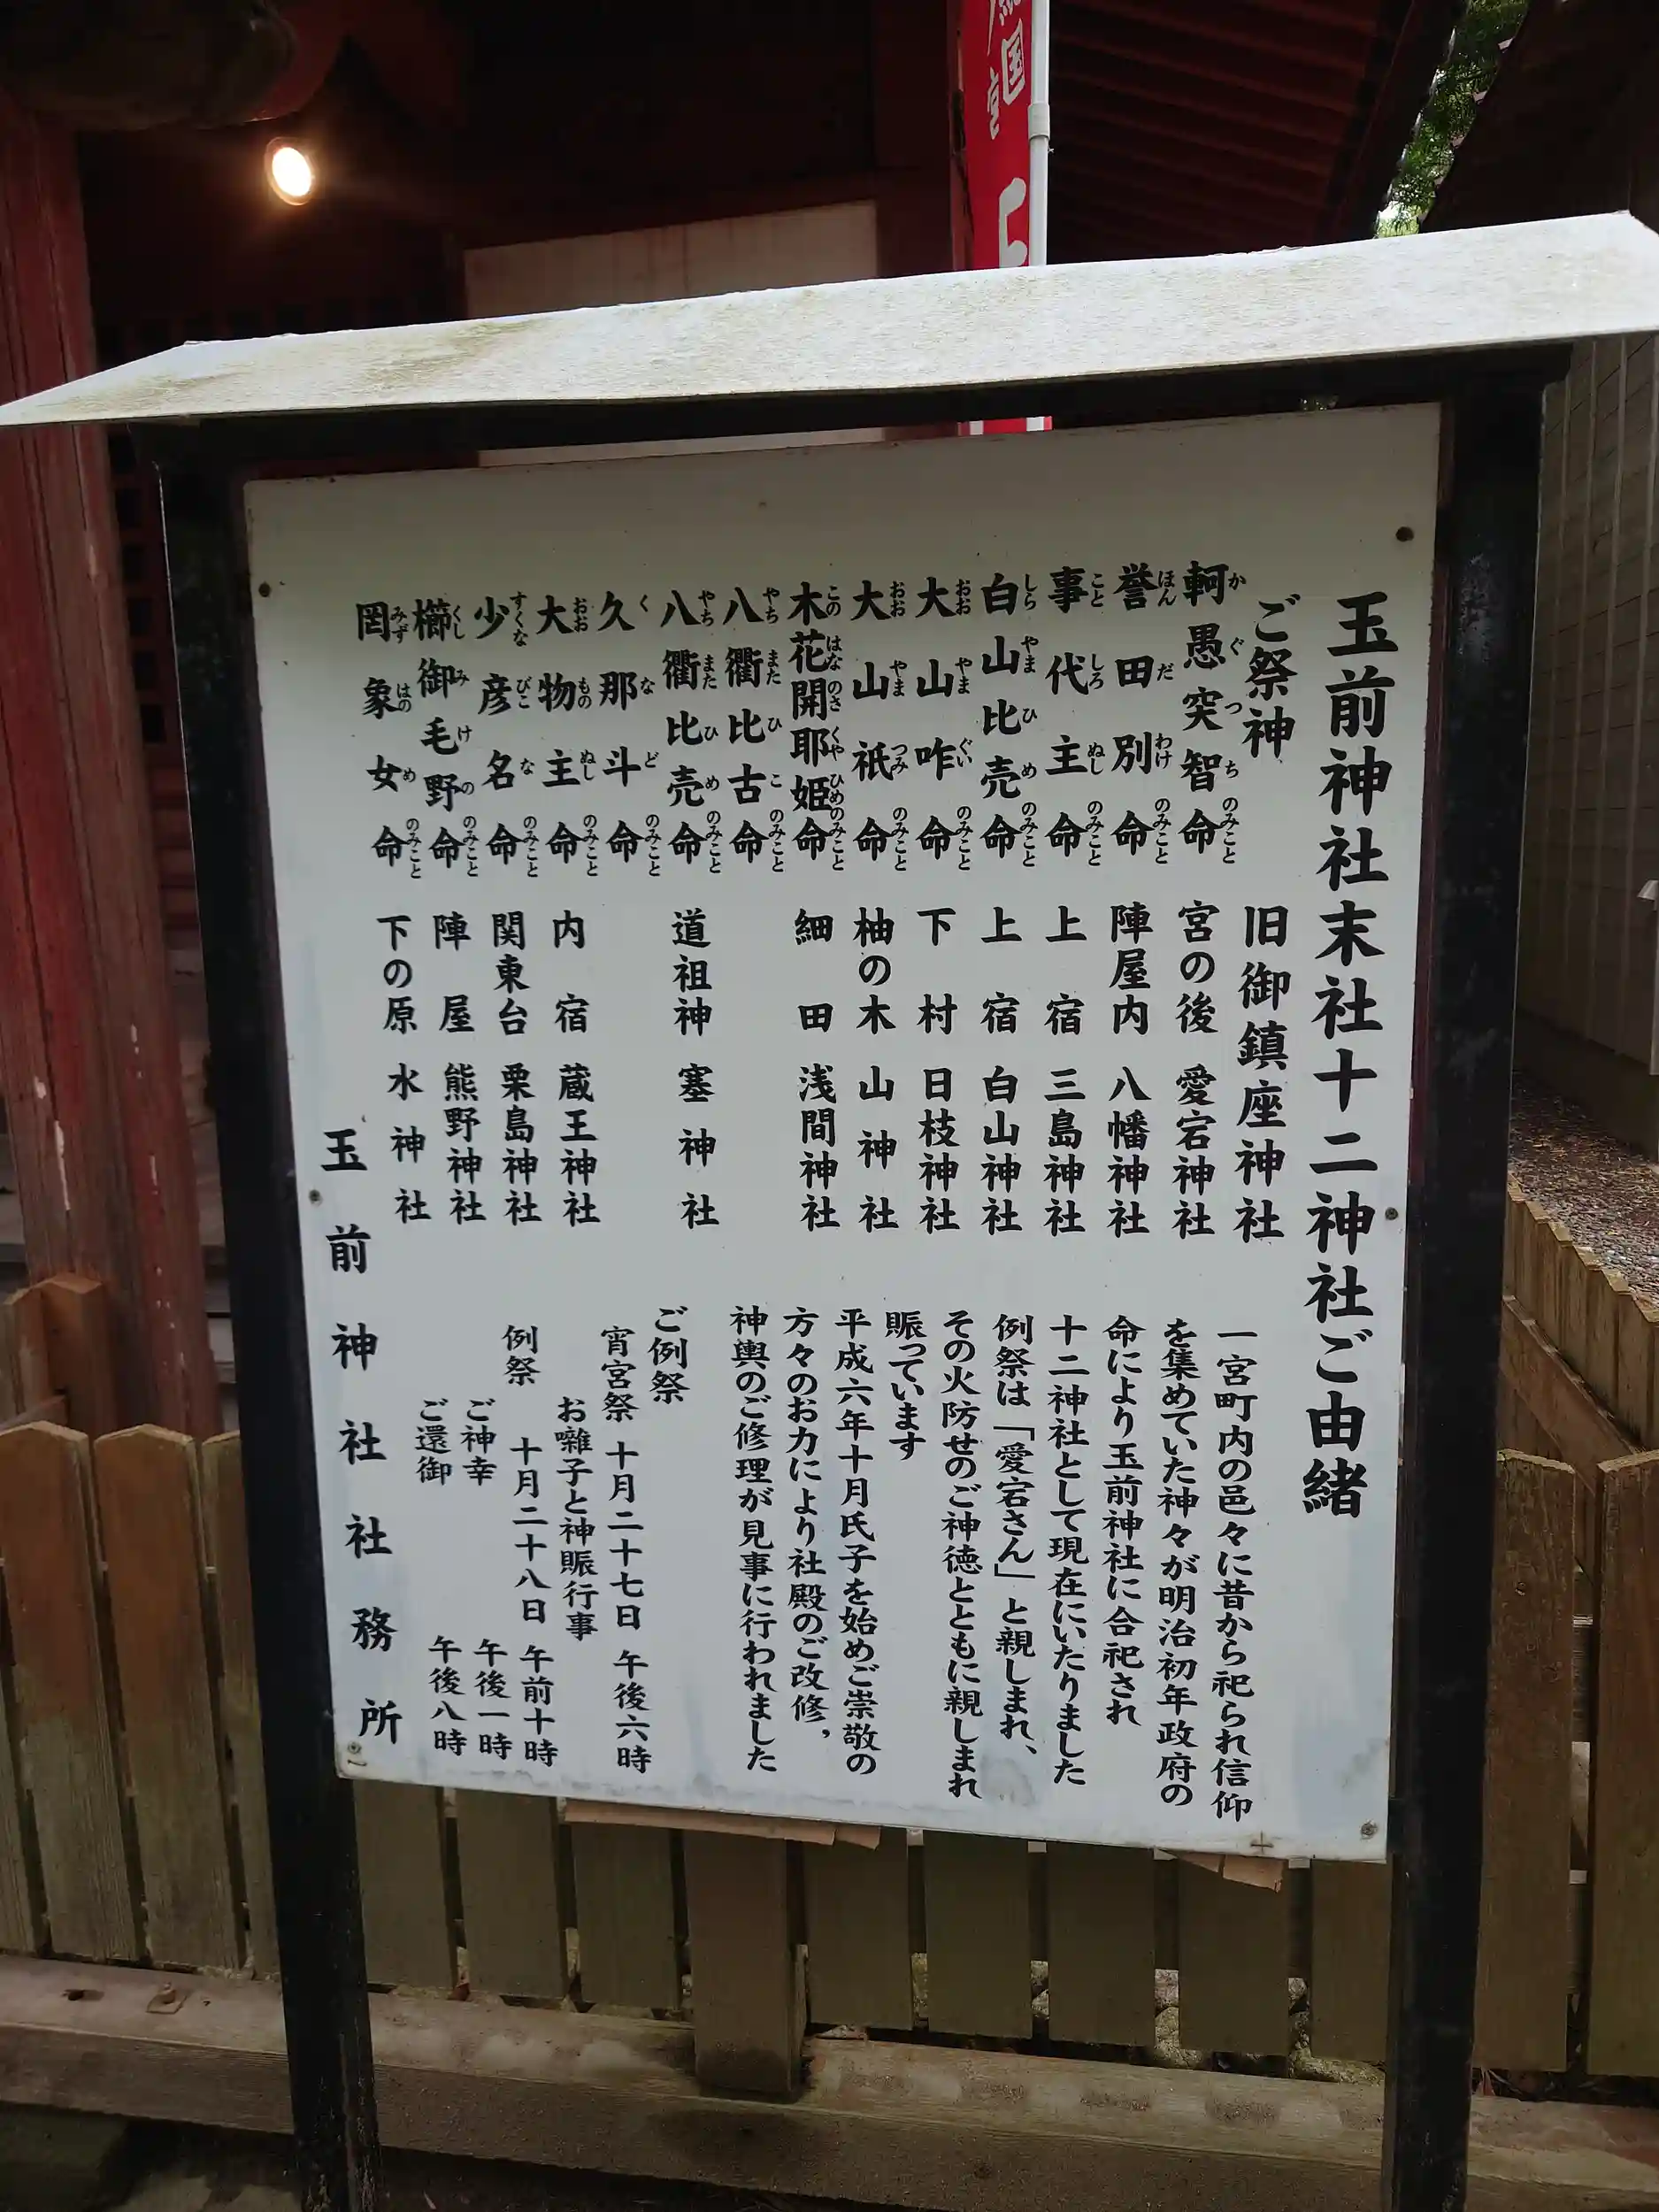 玉前神社末社十二神社ご由緒
ご祭神 旧御鎮座神社
軻愚突智命 宮の後 愛宕神社
誉田別命 陣屋内 八幡神社
事代主命 上宿 三島神社
白山比売命 上宿 白山神社
大山咋命 下村 日枝神社
大山祇命 柚の木 山神社
木花開耶姫命 細田 浅間神社
八衢比古命
八衢比売命 道祖神 塞神社
久那斗命
大物主命 内宿 蔵王神社
少彦名命 関東台 栗島神社
櫛御毛野命 陣屋 熊野神社
罔象女命 下の原 水神社
一宮町内の邑々に昔から祀られ信仰
を集めていた神々が明治初年政府の
命により玉前神社に合祀され
十二神社として現在にいたりました
例祭は「愛宕さん」と親しまれ、
その火防せのご神徳とともに親しまれ
賑っています
平成六年十月氏子を始めご崇敬の
方々のお力により社殿のご改修，
神輿のご修理が見事に行われました
ご例祭
宵宮祭 十月二十七日 午後六時
お囃子と神賑行事
例祭 十月二十八日 午前十時
ご神幸 午後一時
ご還御 午後八時
玉前神社社務所
国
宮